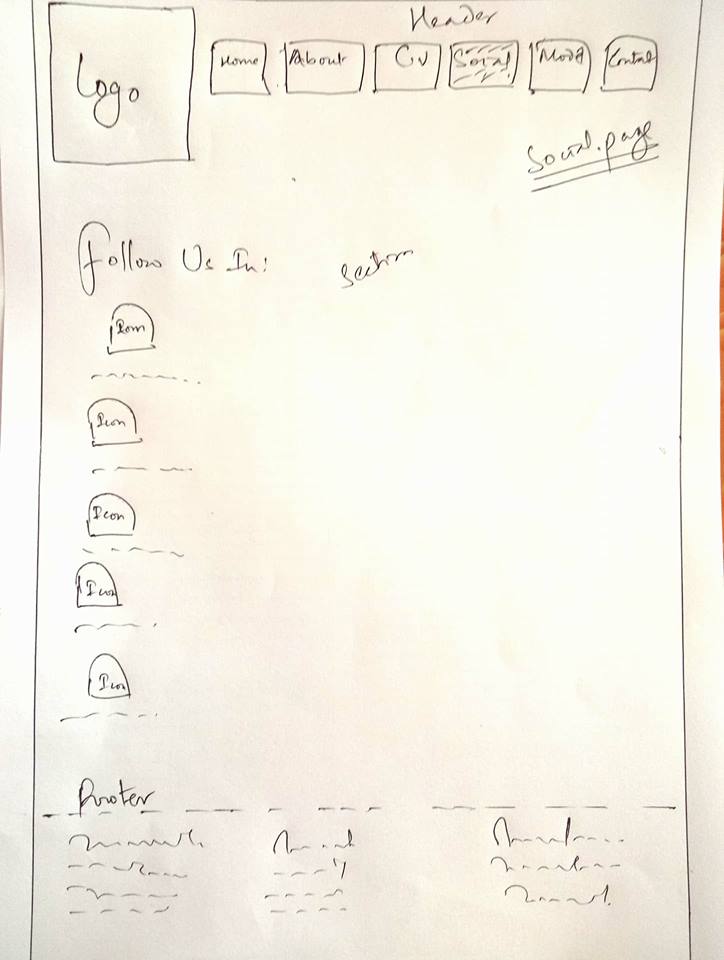 Header
Logo
Home About CV Social Contact
Social.page
Follow Us In:
Section
Icon
Icon
Icon
Icon
Icon
Footer